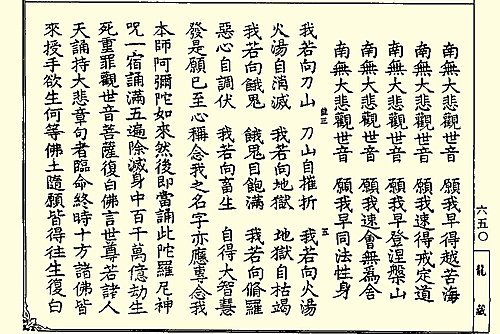 六五〇 龍藏
南無大悲觀世音 願我早得越苦海
南無大悲觀世音 願我速得戒定道
南無大悲觀世音 願我早登涅槃山
南無大悲觀世音 願我速會無為舍
南無大悲觀世音 願我早同法性身
五
我若向刀山 刀山自摧折 我若向火湯
火湯自消滅 我若向地獄 地獄自枯竭
我若向餓鬼 餓鬼自飽滿 我若向脩羅
惡心自調伏 我若向畜生 自得大智慧
發是願已至心稱念我之名字亦應專念我
本師阿彌陀如來然後即當誦此陀羅尼神
呪一宿誦滿五遍除滅身中百千萬億劫生
死重罪觀世音菩薩復白佛言世尊若諸人
天誦持大悲章句者臨命終時十方諸佛皆
來授手欲生何等佛土隨願皆得往生復白